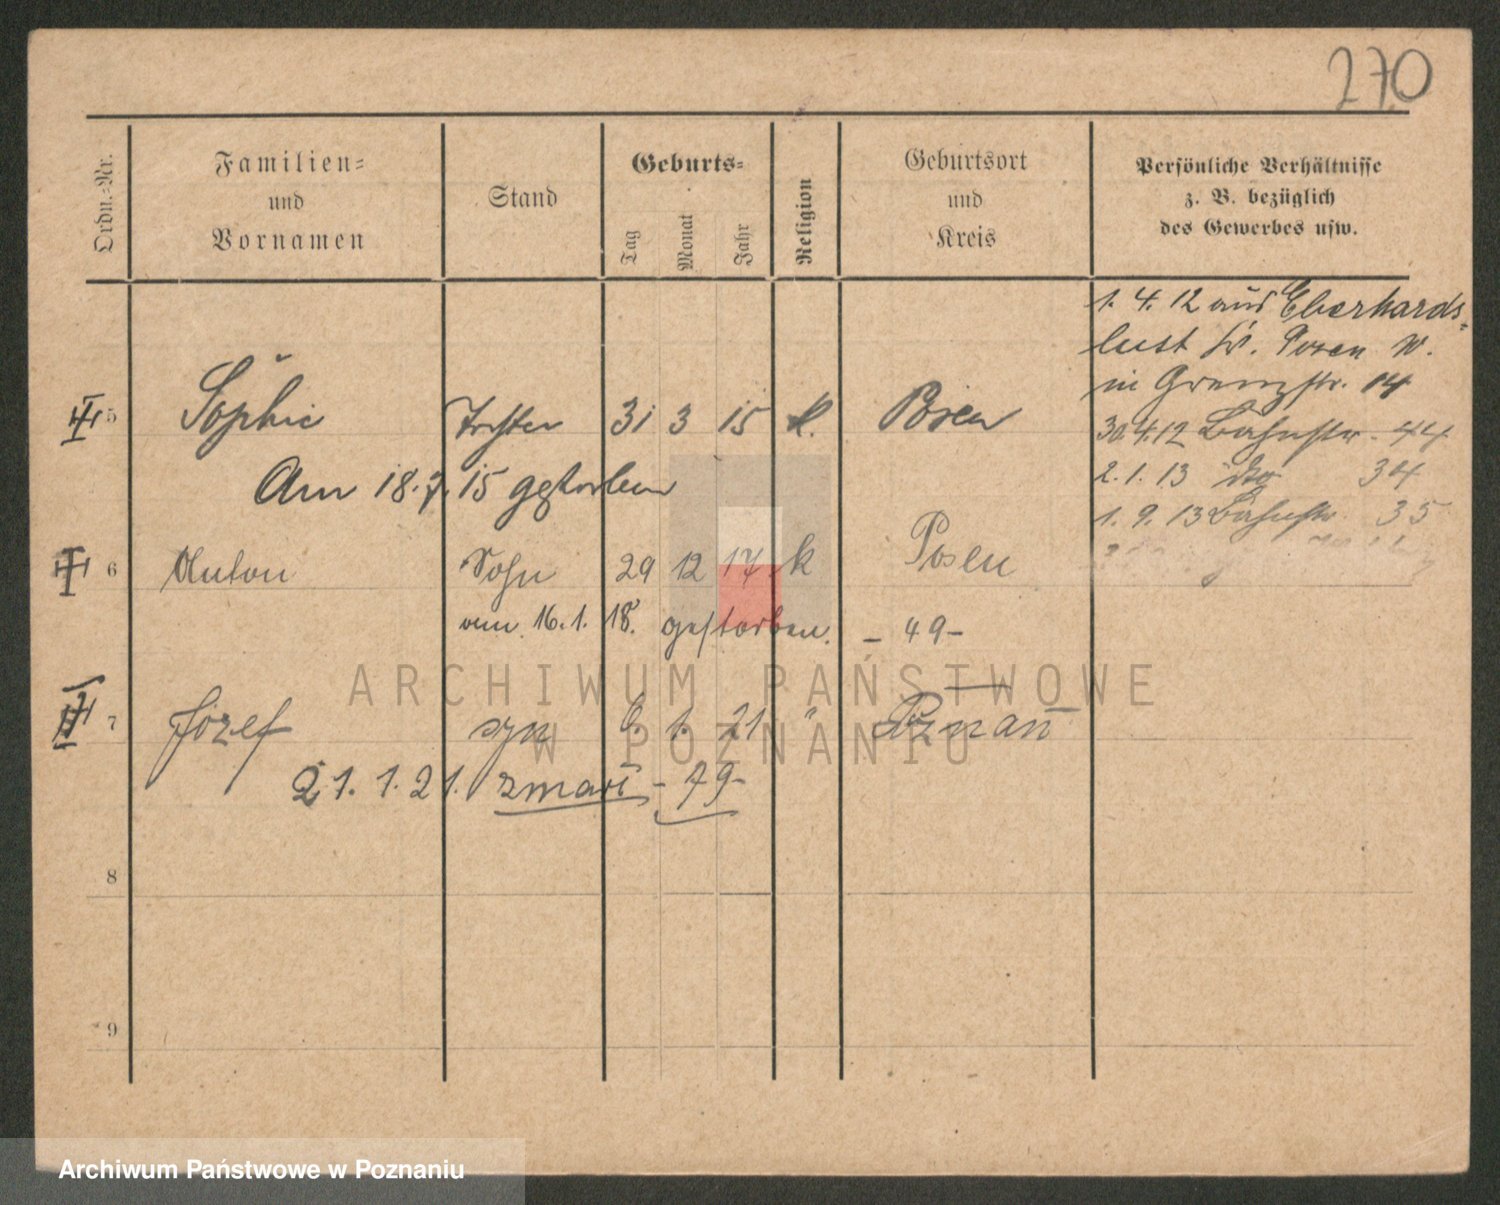 270
Ordn.-Nr.
Familien-
und
Vornamen
Stand
Geburts-
Tag
Monat
Jahr
Religion
Geburtsort
und
Kreis
Persönliche Verhältnisse
z. B. bezüglich
des Gewerbes usw.
1. 4. 12 aus Eberhards-
lust Kr. Posen W.
in Grenzstr. 14
5 Sophie Tochter 31 3 15 k. Posen
30.4.12 Bahnstr. 44
Am 18.7.15 gestorben
2. 1. 13 dto 34
1. 9. 13 Bahnstr. 35
6 Anton Sohn 29 12 17 k Posen
am 16.1.18. gestorben. - 49-
ARCHIWUM PAŃSTWOWE
W POZNANIU
7 Józef syn 6. 1. 21 " Poznań
21.1.21. zmarł - 79-
8
9
Archiwum Państwowe w Poznaniu